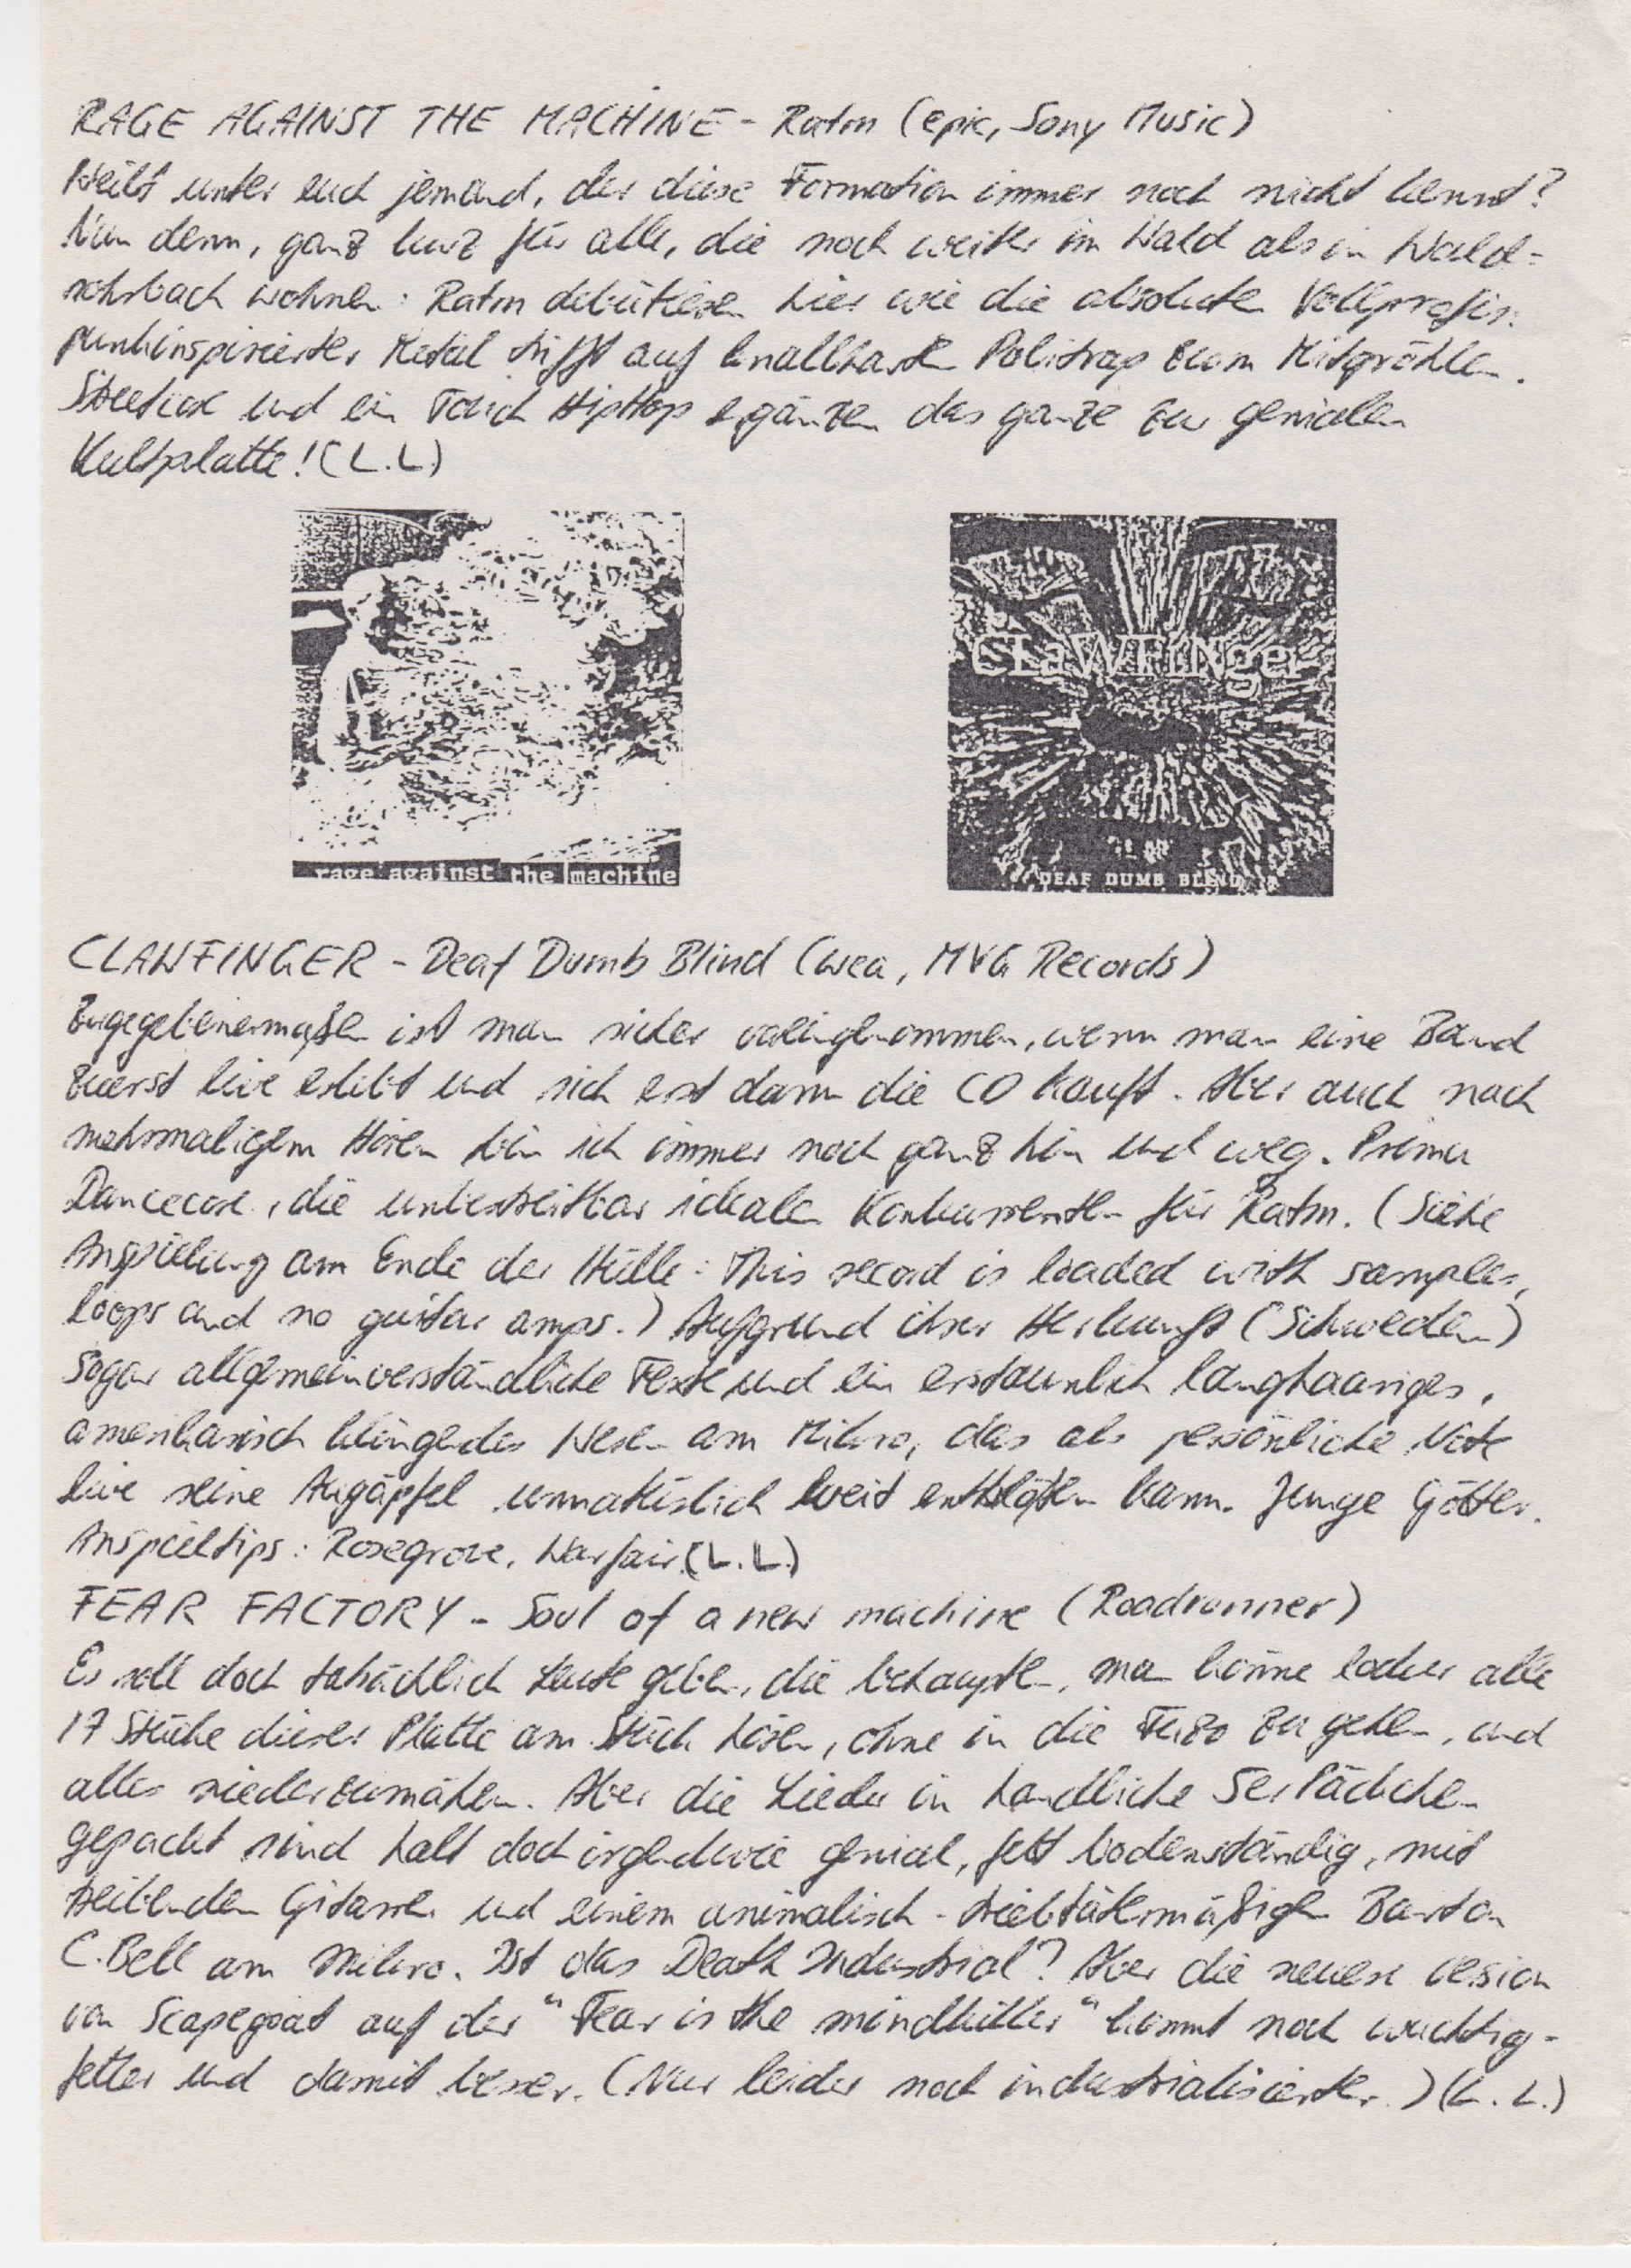 RAGE AGAINST THE MACHINE - Ratm (epic, Sony Music)
Weilt unter euch jemand, der diese Formation immer noch nicht kennt?
Nun denn, ganz kurz für alle, die noch weiter im Wald als in Wald-
rohrbach wohnen: Ratm debütieren hier wie die absoluten Vollprofis:
punkinspirierter Metal trifft auf knallharten Politrap zum Mitgröhlen.
Streetcore und ein Touch HipHop ergänzen das ganze zur genialen
Kultplatte! (L.L)
rage against the machine
CLAWFINGER
DEAF DUMB BLIND
CLAWFINGER - Deaf Dumb Blind (wea, MVG Records)
Zugegebenermaßen ist man sicher voreingenommen, wenn man eine Band
zuerst live erlebt und sich erst dann die CD kauft. Aber auch nach
mehrmaligem Hören bin ich immer noch ganz hin und weg. Prima
Dancecore, die unbestreitbar idealen Konkurrenten für Ratm. (Siehe
Anspielung am Ende der Hülle: This record is loaded with samples,
loops and no guitar amps.) Aufgrund ihrer Herkunft (Schweden)
sogar allgemeinverständliche Texte und ein erstaunlich langhaariges,
amerikanisch klingendes Wesen am Mikro, das als persönliche Note
live seine Augäpfel unnatürlich weit entblößen kann. Junge Götter.
Anspieltips: Rosegrove, Warfair. (L.L.)
FEAR FACTORY - Soul of a new machine (Roadrunner)
Es soll doch tatsächlich Leute geben, die behaupten, man könne locker alle
17 Stücke dieser Platte am Stück hören, ohne in die FuZo zu gehen, und
alles niederzumähen. Aber die Lieder in handliche 5er Päckchen
gepackt sind halt doch irgendwie genial, fett bodenständig, mit
treibenden Gitarren und einem animalisch-triebtätermäßigen Burton
C. Bell am Mikro. Ist das Death Industrial? Aber die neuere Version
von Scapegoat auf der "Fear is the mindkiller" kommt noch wuchtig-
fetter und damit besser. (Nur leider noch industrialisierter.) (L.L.)